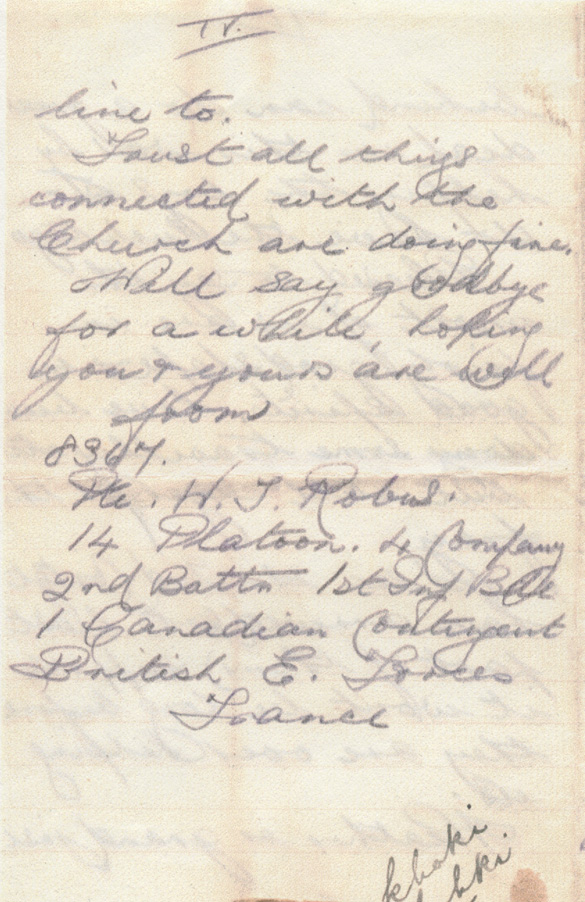 IV.
line to.
Trust all things
connected with the
Church are doing fine.
Well say goodbye
for a while, hoping
you & yours are well
from
8367.
Pte. W. J. Robus.
14 Platoon. 4 Company
2nd Battn 1st Inf Bde
1 Canadian Contingent
British E. Forces
France
khaki